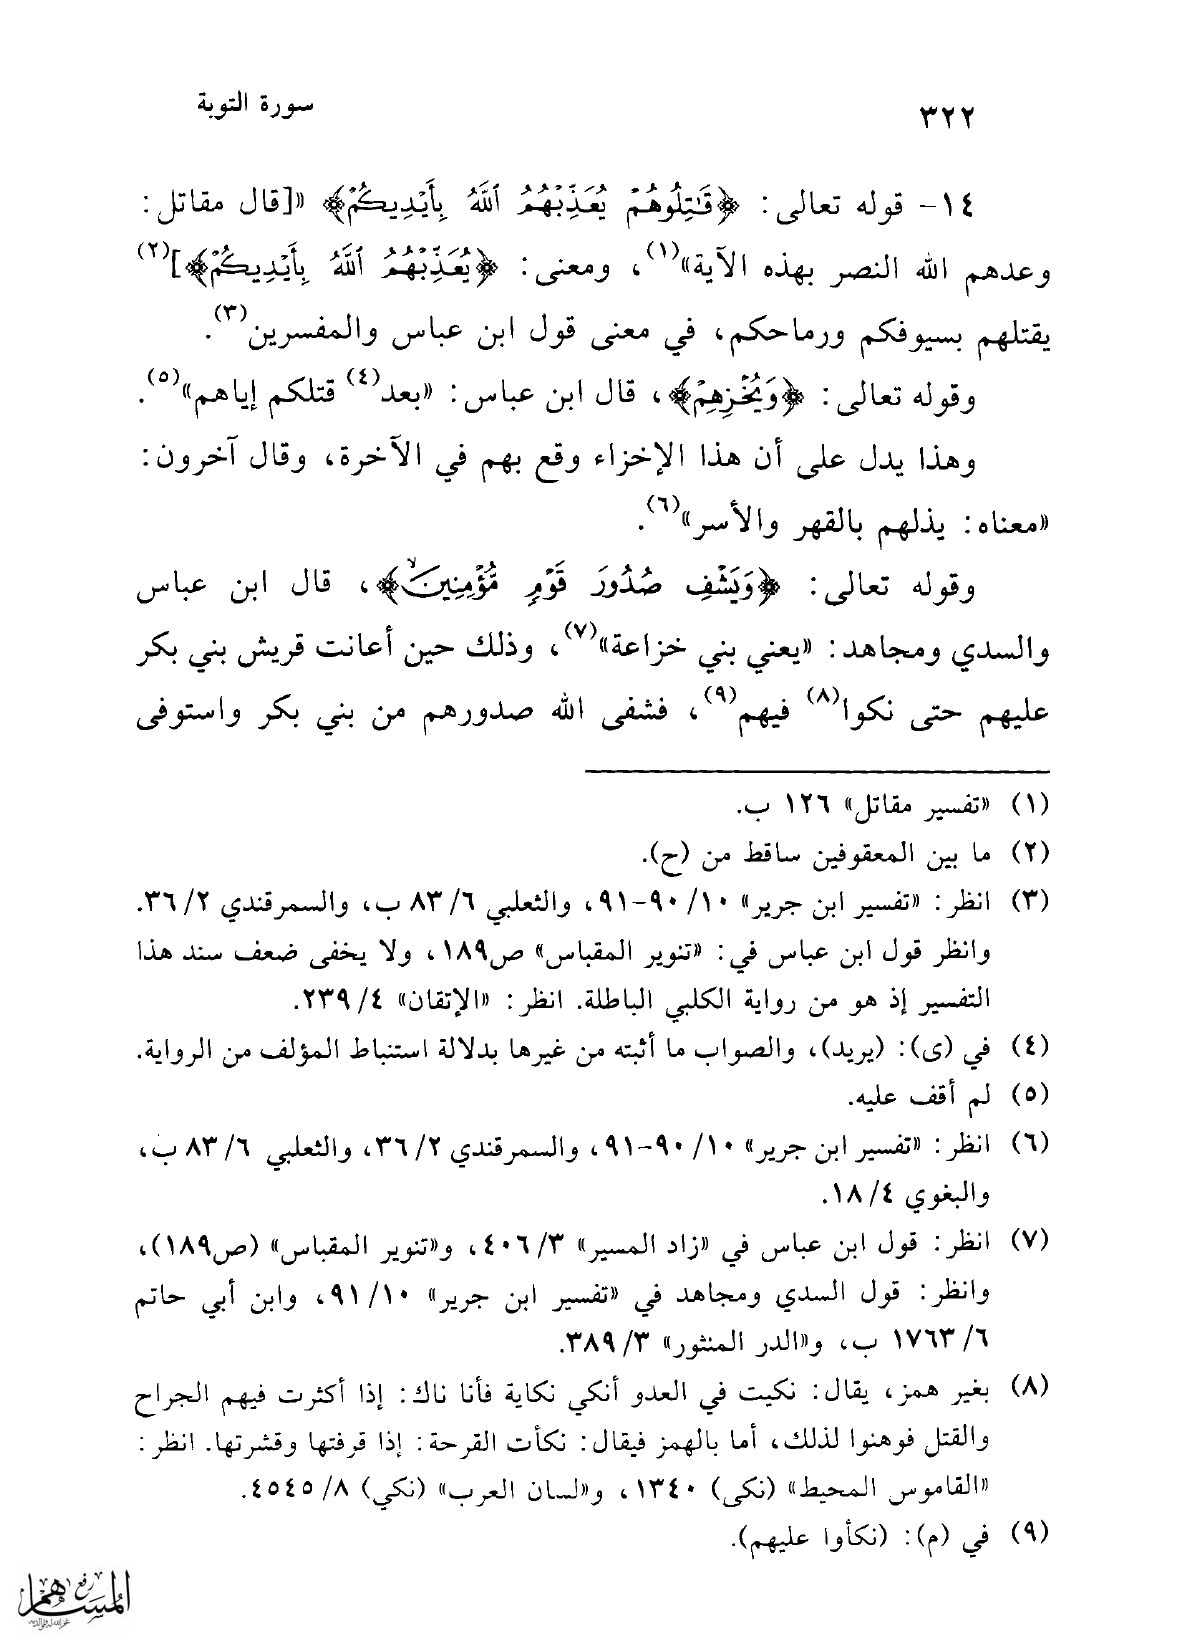 ٣٢٢
سورة التوبة
١٤- قوله تعالى: ﴿قَٰتِلُوهُمْ يُعَذِّبْهُمُ ٱللَّهُ بِأَيْدِيكُمْ﴾ «[قال مقاتل:
وعدهم الله النصر بهذه الآية»(١)، ومعنى: ﴿يُعَذِّبْهُمُ ٱللَّهُ بِأَيْدِيكُمْ﴾](٢)
يقتلهم بسيوفكم ورماحكم، في معنى قول ابن عباس والمفسرين(٣).
وقوله تعالى: ﴿وَيُخْزِهِمْ﴾، قال ابن عباس: «بعد(٤) قتلكم إياهم»(٥).
وهذا يدل على أن هذا الإخزاء وقع بهم في الآخرة، وقال آخرون:
«معناه: يذلهم بالقهر والأسر»(٦).
وقوله تعالى: ﴿وَيَشْفِ صُدُورَ قَوْمٍ مُّؤْمِنِينَ﴾، قال ابن عباس
والسدي ومجاهد: «يعني بني خزاعة»(٧)، وذلك حين أعانت قريش بني بكر
عليهم حتى نكوا(٨) فيهم(٩)، فشفى الله صدورهم من بني بكر واستوفى
(١) «تفسير مقاتل» ١٢٦ ب.
(٢) ما بين المعقوفين ساقط من (ح).
(٣) انظر: «تفسير ابن جرير» ١٠/ ٩٠-٩١، والثعلبي ٦/ ٨٣ ب، والسمرقندي ٢/ ٣٦.
وانظر قول ابن عباس في: «تنوير المقباس» ص١٨٩، ولا يخفى ضعف سند هذا
التفسير إذ هو من رواية الكلبي الباطلة. انظر: «الإتقان» ٤/ ٢٣٩.
(٤) في (ى): (يريد)، والصواب ما أثبته من غيرها بدلالة استنباط المؤلف من الرواية.
(٥) لم أقف عليه.
(٦) انظر: «تفسير ابن جرير» ١٠/ ٩٠-٩١، والسمرقندي ٢/ ٣٦، والثعلبي ٦/ ٨٣ ب،
والبغوي ٤/ ١٨.
(٧) انظر: قول ابن عباس في «زاد المسير» ٣/ ٤٠٦، و«تنوير المقباس» (ص١٨٩)،
وانظر: قول السدي ومجاهد في «تفسير ابن جرير» ١٠/ ٩١، وابن أبي حاتم
٦/ ١٧٦٣ ب، و«الدر المنثور» ٣/ ٣٨٩.
(٨) بغير همز، يقال: نكيت في العدو أنكي نكاية فأنا ناك: إذا أكثرت فيهم الجراح
والقتل فوهنوا لذلك، أما بالهمز فيقال: نكأت القرحة: إذا قرفتها وقشرتها. انظر:
«القاموس المحيط» (نكى) ١٣٤٠، و«لسان العرب» (نكي) ٨/ ٤٥٤٥.
(٩) في (م): (نكأوا عليهم).